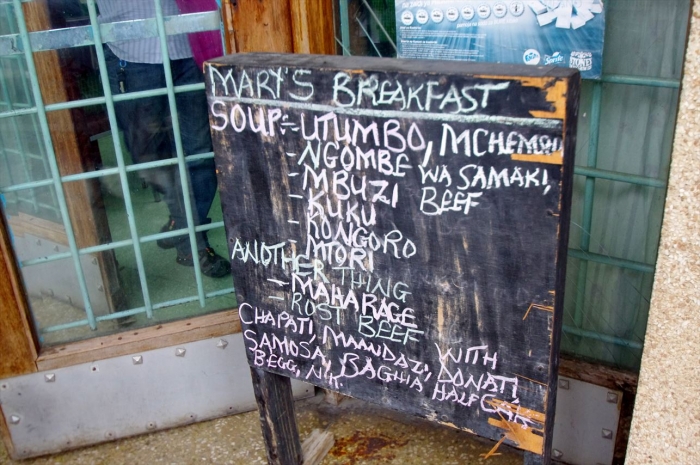 MARY'S BREAKFAST
SOUP:- UTUMBO, MCHEMSO
- NGOMBE WA SAMAKI,
- MBUZI BEEF
- KUKU
- KONGORO
- MTORI
ANOTHER THING
- MAHARAGE
- ROST BEEF
CHAPATI, MAANDAZI, WITH DONATI,
SAMOSA, BAGHIA, HALF CAK
BEGG, NK.
Sprite